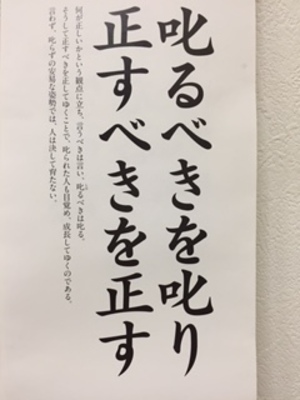 叱るべきを叱り
正すべきを正す
何が正しいかという観点に立ち、言うべきは言い、叱るべきは叱る。
そうして正すべきを正してゆくことで、叱られた人も目覚め、成長してゆくのである。
言わず、叱らずの安易な姿勢では、人は決して育たない。